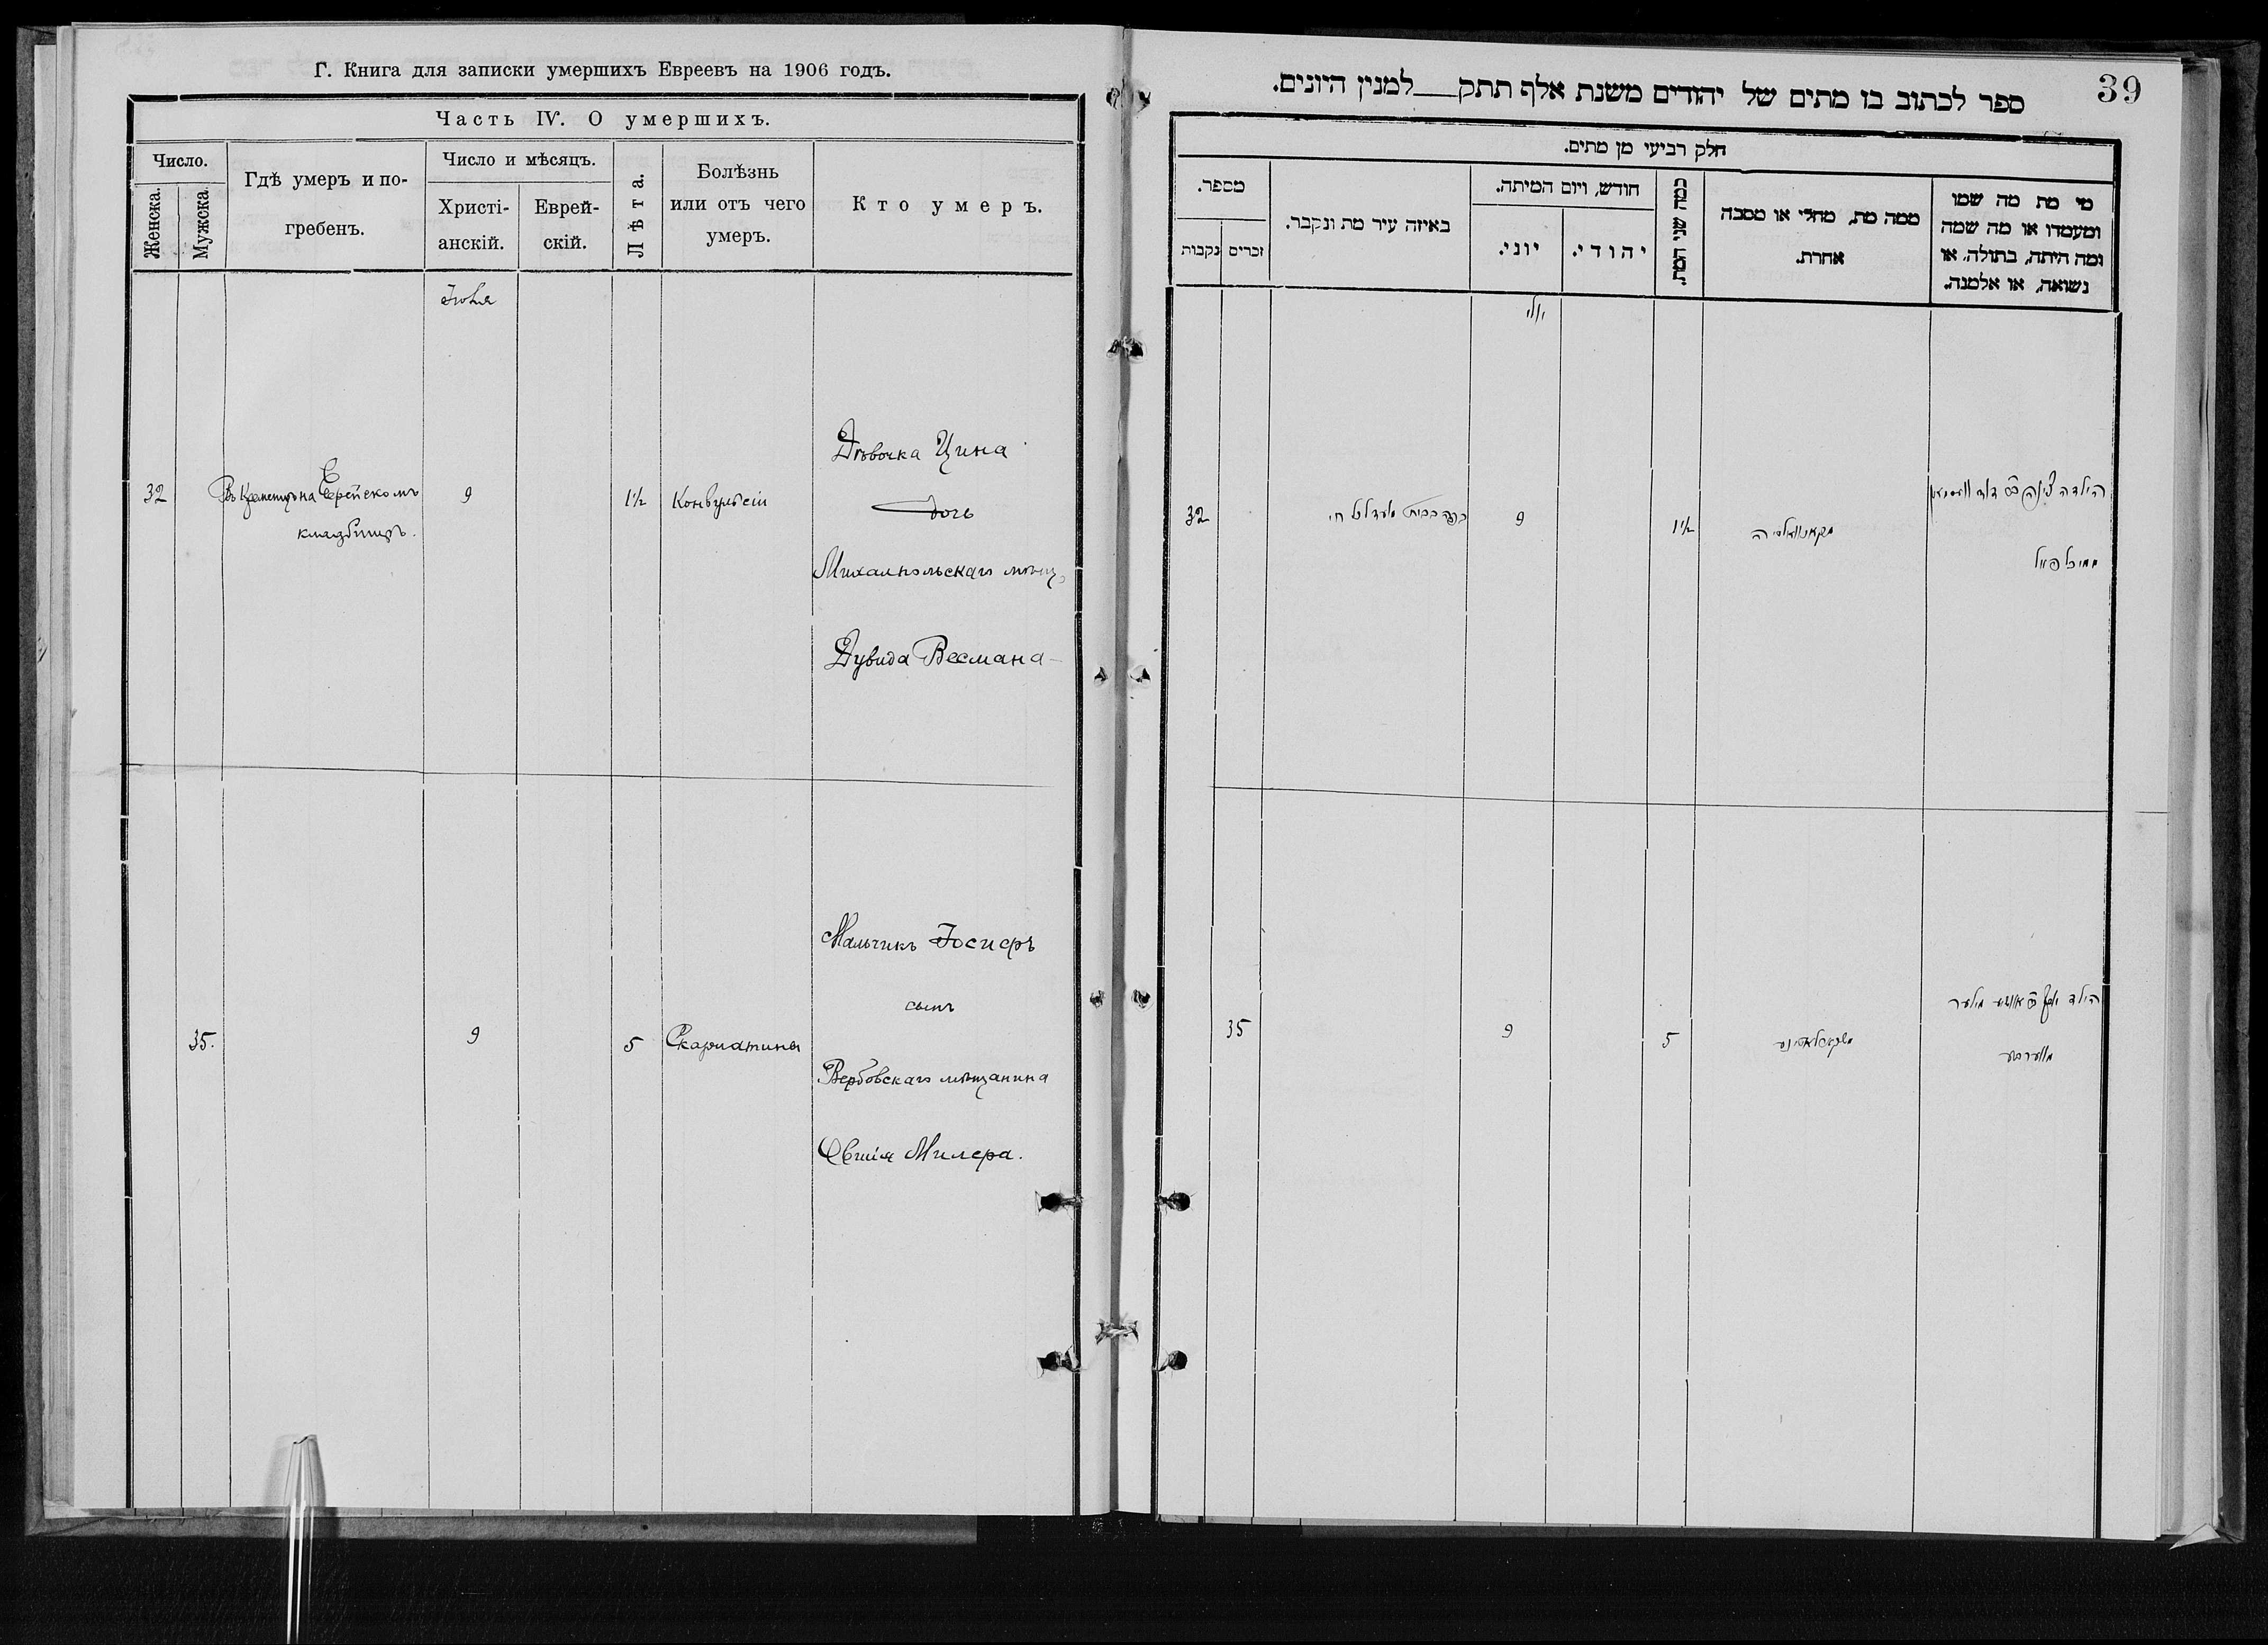 Г. Книга для записки умершихъ Евреевъ на 1906 годъ.
Часть IV. О умершихъ.
Число.
Женска.
Мужска.
Гдѣ умеръ и по-
гребенъ.
Число и мѣсяцъ.
Христі-
анскій.
Еврей-
скій.
Лѣта.
Болѣзнь
или отъ чего
умеръ.
Кто умеръ.
Іюля
32
Въ Кременцѣ на Еврейскомъ
кладбищѣ.
9
1½
Конвульсіи
Дѣвочка Цина
дочь
Михалпольскаго мѣщ.
Дувида Весмана
35.
9
5
Скарлатина
Мальчикъ Іосифъ
сынъ
Вербовскаго мѣщанина
Овшія Милера.
39
ספר לכתוב בו מתים של יהודים משנת אלף תתק למנין היונים.
חלק רביעי מן מתים.
מספר.
נקבות
זכרים
באיזה עיר מת ונקבר.
חודש, ויום המיתה.
יוני.
יהודי.
כמה שני המת.
ממה מת, מחלי או מסבה
אחרת.
מי מת מה שמו
ומעמדו או מה שמה
ומה היתה, בתולה, או
נשואה, או אלמנה.
יולי
32
9
1½
הילדה צינה
דוד
35
9
5
הילד יוסף
מילער